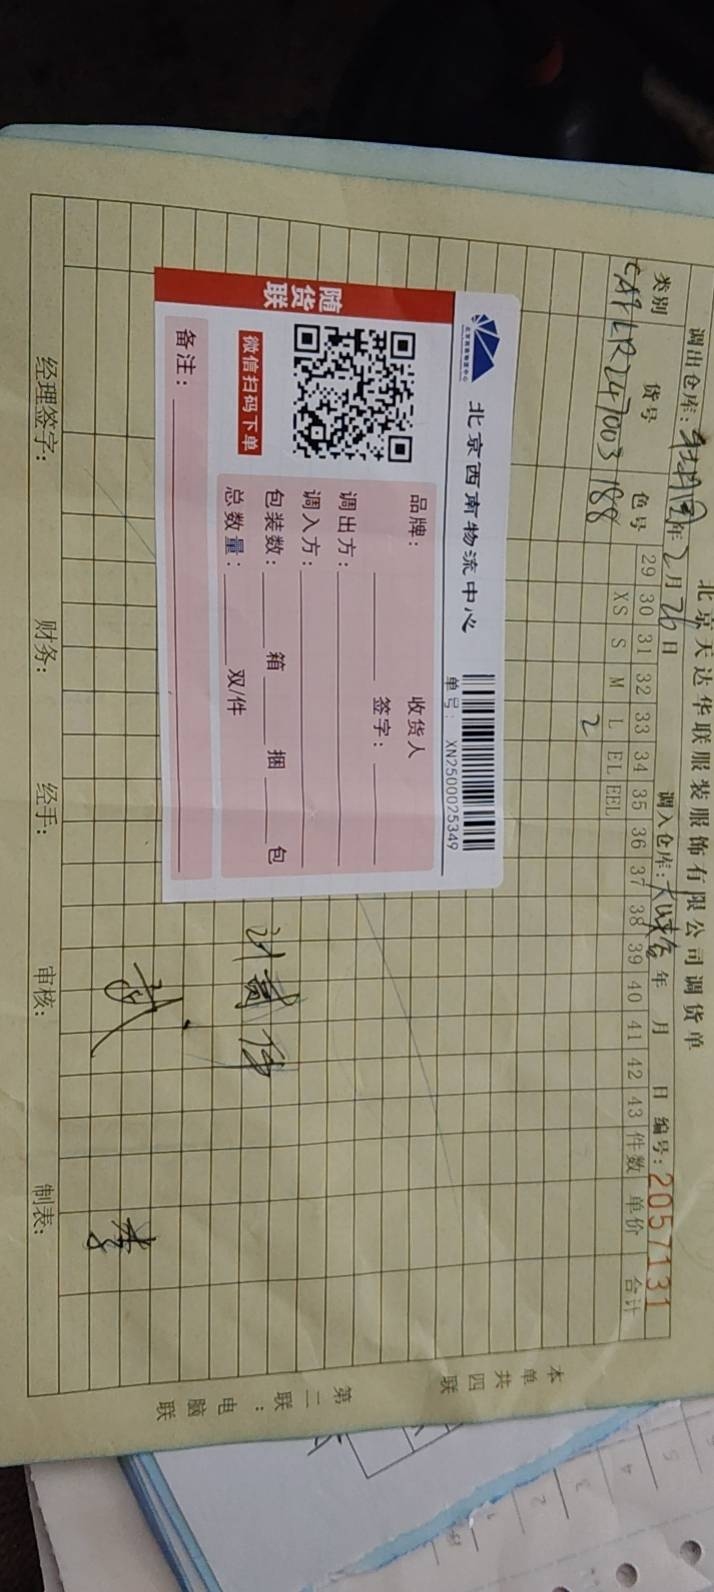 北京天达华联服装服饰有限公司调货单
调出仓库: 年2月26日 调入仓库: 年 月 日 编号: 2057131
类别 货号 色号 29 30 31 32 33 34 35 36 37 38 39 40 41 42 43 件数 单价 合计
XS S M L EL EEL
CAPLR247003 188 2
本单共四联
第二联:电脑联
北京西南物流中心
单号: XN2500025349
品牌: 收货人签字:
调出方:
调入方:
包装数: 箱 捆 包
总数量: 双/件
备注:
随货联
微信扫码下单
经理签字: 财务: 经手: 审核: 制表: